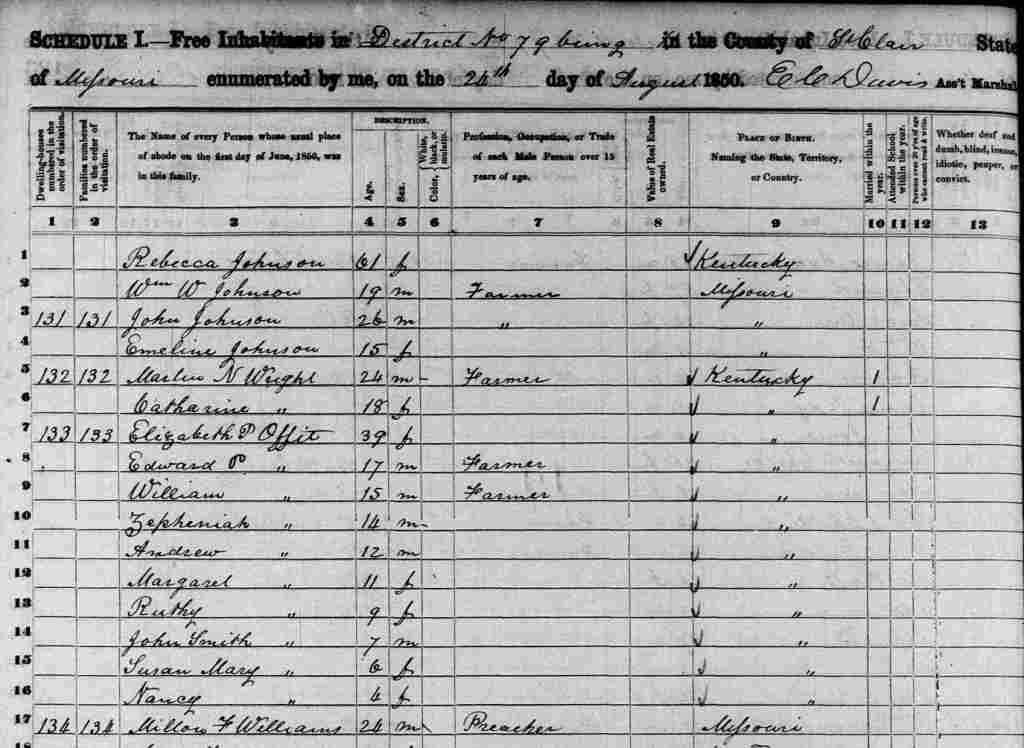 SCHEDULE I.—Free Inhabitants in District No 79 being in the County of St Clair State
of Missouri enumerated by me, on the 24th day of August 1850. E C Davis Ass't Marshal
Dwelling-houses numbered in the order of visitation.
Families numbered in the order of visitation.
The Name of every Person whose usual place of abode on the first day of June, 1850, was in this family.
DESCRIPTION.
Age.
Sex.
Color, White, black, or mulatto.
Profession, Occupation, or Trade of each Male Person over 15 years of age.
Value of Real Estate owned.
PLACE OF BIRTH. Naming the State, Territory, or Country.
Married within the year.
Attended School within the year.
Persons over 20 y'rs of age who cannot read & write.
Whether deaf and dumb, blind, insane, idiotic, pauper, or convict.
1 2 3 4 5 6 7 8 9 10 11 12 13
1 Rebecca Johnson 61 f Kentucky
2 Wm W Johnson 19 m Farmer Missouri
3 131 131 John Johnson 26 m " "
4 Emeline Johnson 15 f "
5 132 132 Marlin N Wright 24 m Farmer Kentucky 1
6 Catharine " 18 f " 1
7 133 133 Elizabeth P Offit 39 f "
8 Edward P. " 17 m Farmer "
9 William " 15 m Farmer "
10 Zepheniah " 14 m "
11 Andrew " 12 m "
12 Margaret " 11 f "
13 Ruthy " 9 f "
14 John Smith " 7 m "
15 Susan Mary " 6 f "
16 Nancy " 4 f "
17 134 134 Milton F Williams 24 m Preacher Missouri
18